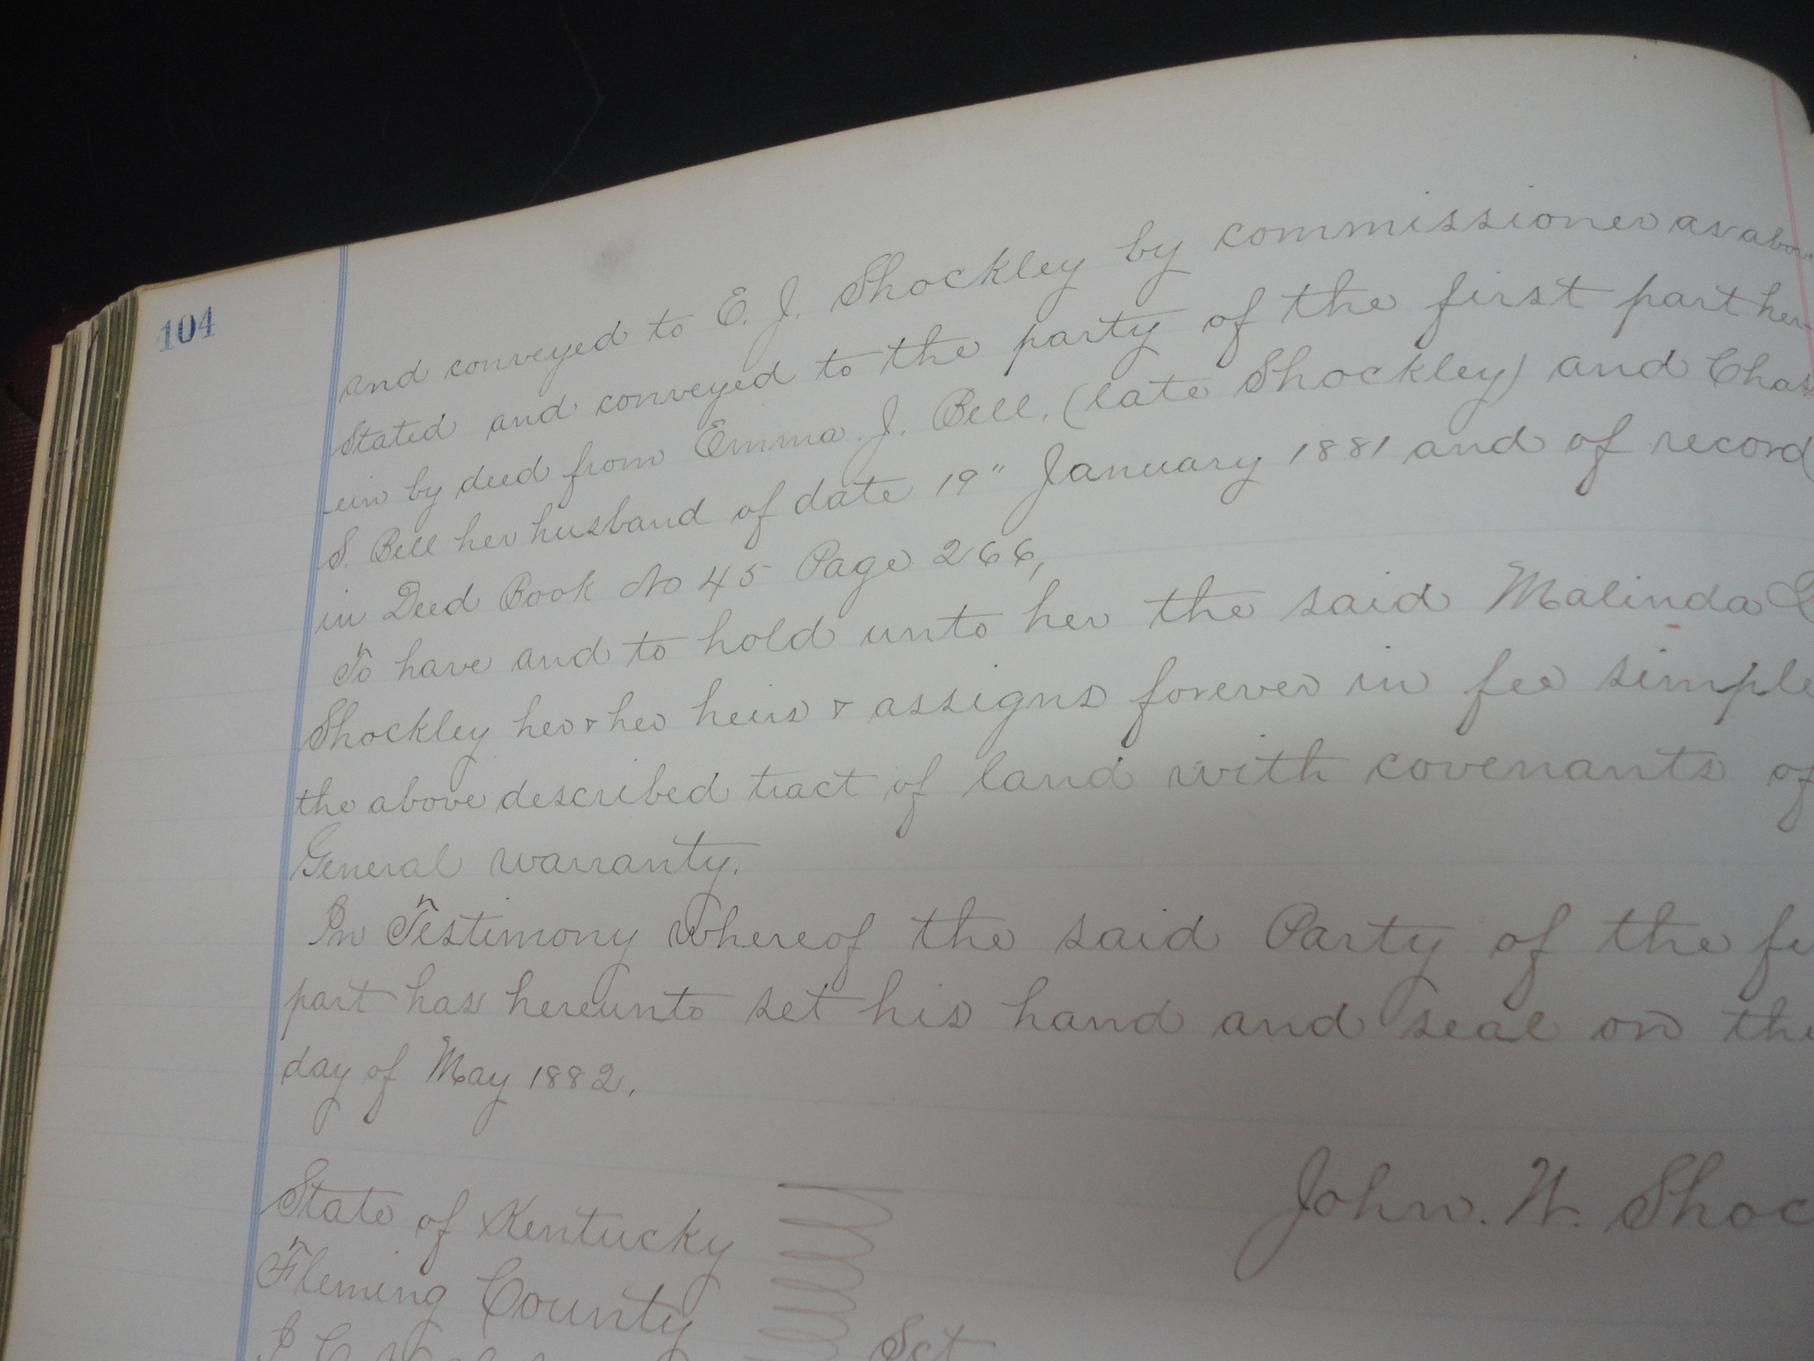 104
and conveyed to E. J. Shockley by commissioner as abov
Stated and conveyed to the party of the first part her-
-ein by deed from Emma J. Bell, (late Shockley) and Chas
S. Bell her husband of date 19" January 1881 and of record
in Deed Book No 45 Page 266,
To have and to hold unto her the said Malinda
Shockley her & her heirs & assigns forever in fee simple
the above described tract of land with covenants of
General warranty.
In Testimony whereof the said Party of the fi
part has hereunto set his hand and seal on the
day of May 1882.
John. W. Shoc
State of Kentucky
Fleming County
Sct